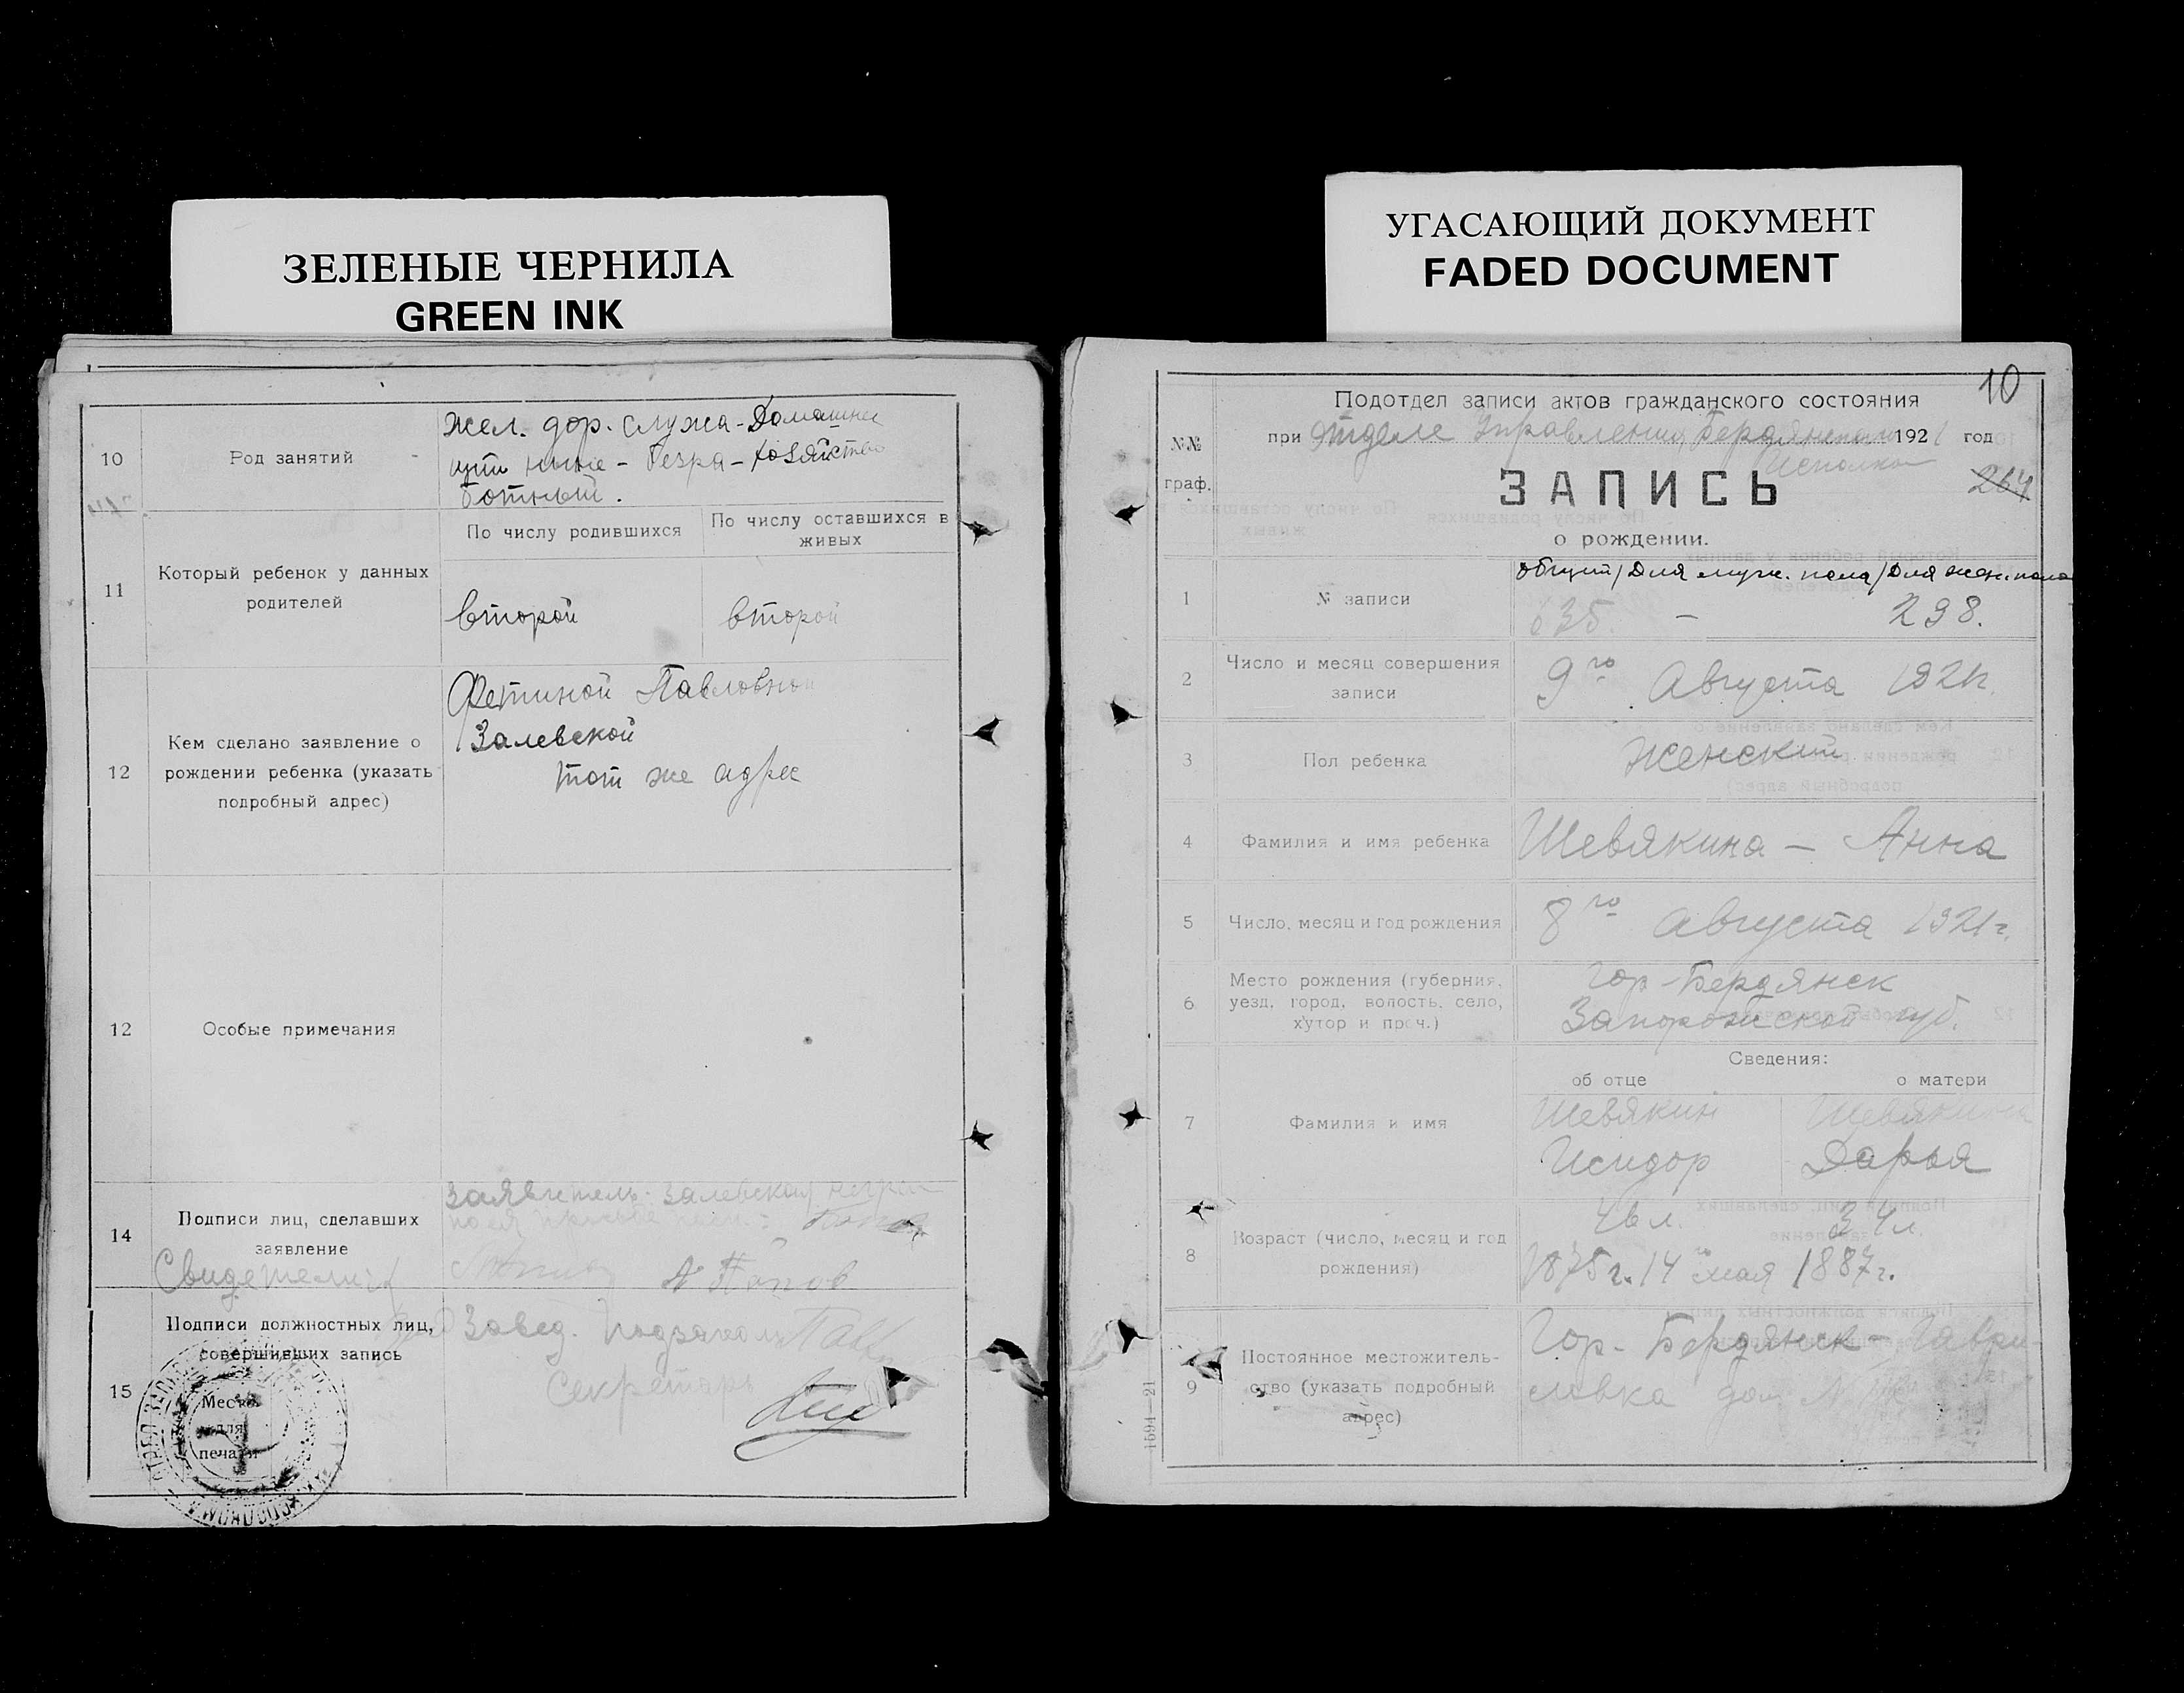 ЗЕЛЕНЫЕ ЧЕРНИЛА
GREEN INK
10
Род занятий
жел. дор. служа-
щий ныне - безра-
ботный.
Домашнее
хозяйство
11
Который ребенок у данных
родителей
По числу родившихся
По числу оставшихся в
живых
второй
второй
12
Кем сделано заявление о
рождении ребенка (указать
подробный адрес)
Фетиной Павловной
Залевской
тот же адрес
12
Особые примечания
14
Подписи лиц, сделавших
заявление
Свидетели
Заявитель: Залевская
Попов
15
Подписи должностных лиц,
совершивших запись
Место
для
печати
Завед.
Секретарь
УГАСАЮЩИЙ ДОКУМЕНТ
FADED DOCUMENT
10
№№
граф.
Подотдел записи актов гражданского состояния
при Отделе Управления Бердянского 1921 год
Исполком
ЗАПИСЬ
264
о рождении.
1
№ записи
общий / Для муж. пола / Для жен. пола
635. — 298.
2
Число и месяц совершения
записи
9го Августа 1921г.
3
Пол ребенка
Женский
4
Фамилия и имя ребенка
Шевякина — Анна
5
Число, месяц и год рождения
8го Августа 1921г.
6
Место рождения (губерния,
уезд, город, волость, село,
хутор и проч.)
Гор-Бердянск
Запорожской губ.
Сведения:
об отце
о матери
7
Фамилия и имя
Шевякин
Исидор
Шевякина
Дарья
8
Возраст (число, месяц и год
рождения)
46 л.
1875г. 14 мая
34 л.
1887г.
9
Постоянное местожитель-
ство (указать подробный
адрес)
Гор- Бердянск -
дом №
1594—21